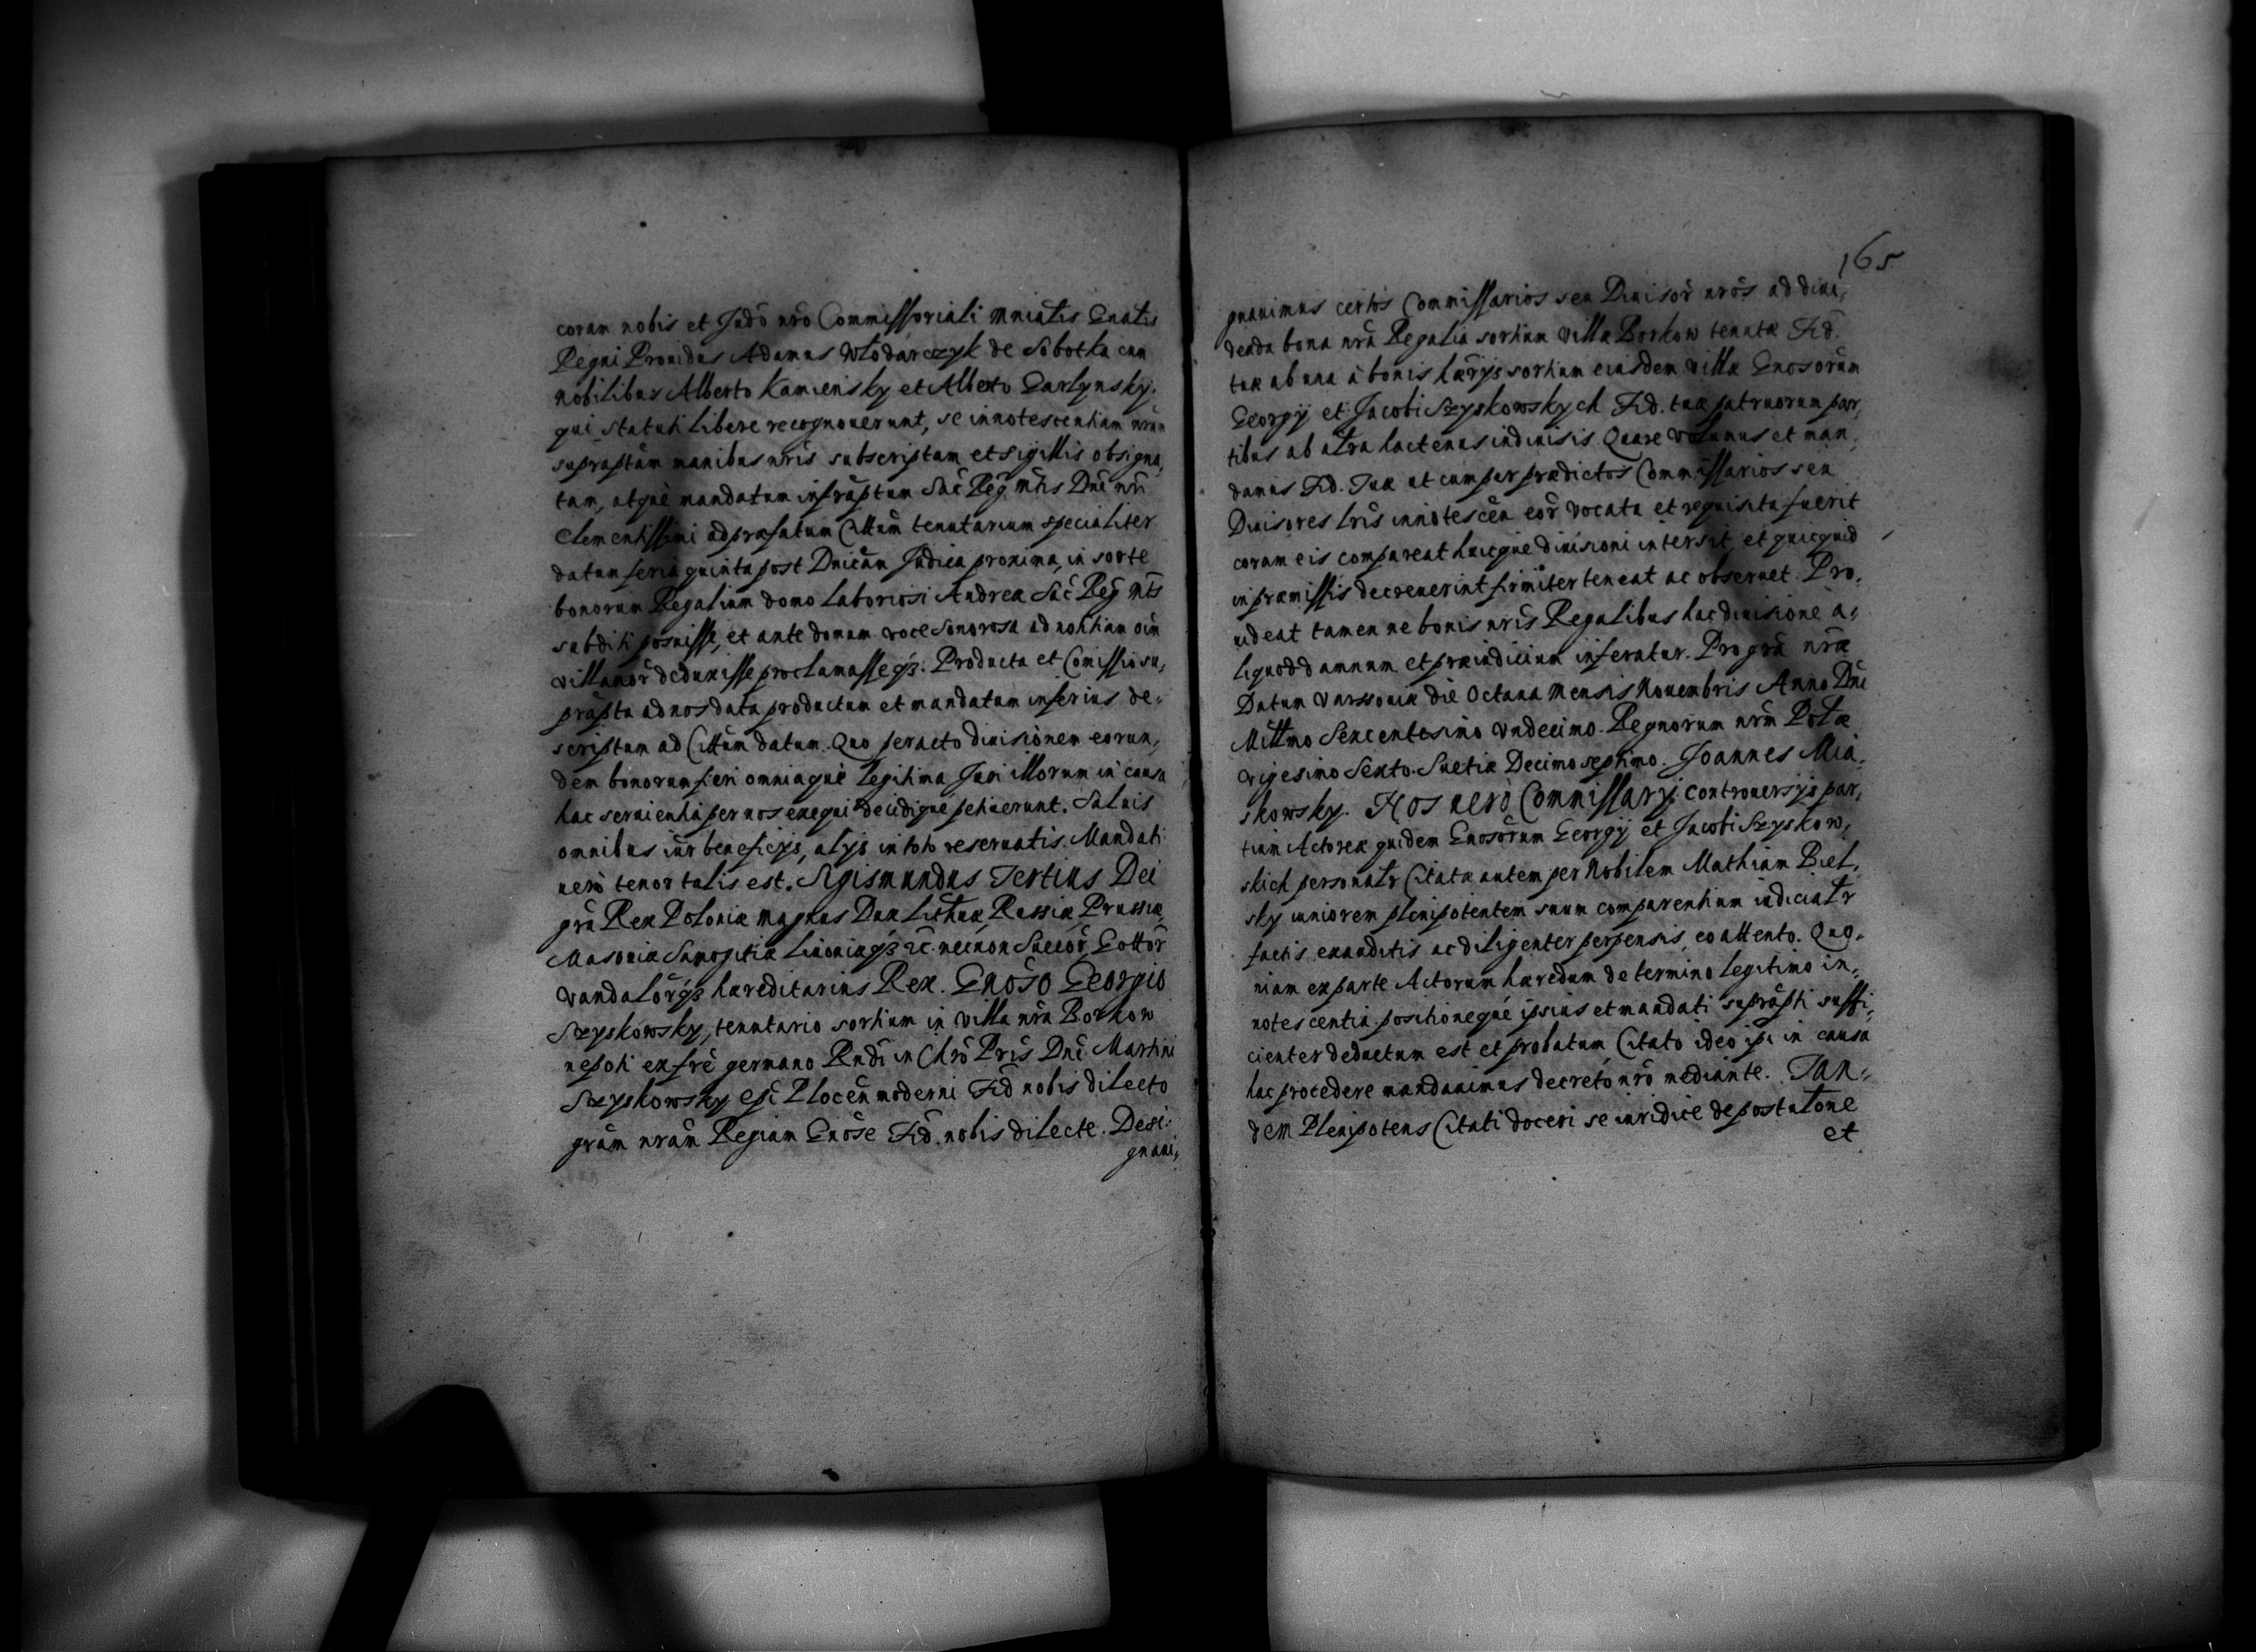 coram nobis et Judō nrō Commissoriali Mniałis Gnałis
Regni Prouidus Adamus Włodarczyk de Sobotka cum
nobilibus Alberto Kamiensky et Alberto Garlynsky.
qui statuti libere recognouerunt, se innotescentiam nrām
suprāptām manibus nrīs subscriptam et sigillis obsigna,
tam, atquè mandatum infrāptum Sāc Rēg Mtis Dnī nrī
Clementissimi ad præfatum Cittum tenutarium specialiter
datum feria quinta post Dnicām Judica proxima, in sorte
bonorum Regalium domo Laboriosi Andreæ Sāc Rēg Mts
subditi posuisse, et ante domum voce sonorosa ad notitiam oīm
villanōr deduxisse proclamasseqз. Producta et Comissio su,
prāpta ad nos data productum et mandatum inferius de-
scriptum ad Cittum datum. Quo peracto diuisionem eorun,
dem bonorum fieri omniaquè legitima Juri illorum in causa
hac seruientia per nos exequi decidiquè petiuerunt. Saluis
omnibus iūr beneficijs, alijs in toto reseruatis. Mandati
uerò tenor talis est. Sigismundus Tertius Dei
grā Rex Poloniæ Magnus Dux Lithuæ, Russiæ, Prussiæ,
Masouiæ Samogitiæ Liuoniæqз zc. necnon Suecōr, Gottōr
Vandalōrqз hæreditarius Rex. Gnōso Georgio
Szyskowsky, tenutario sortium in villa nrā Borkow
nepoti ex frē germano Rndi in Chrō Prīs Dnī Martini
Szyskowsky Epī Plocēn moderni Fid nobis dilecto
grām nrām Regiam Gnōse Fid. nobis dilecte. Desi-
gnaui,
165
gnauimus certos Commissarios seu Diuisōr nrōs ad diui,
denda bona nrā Regalia sortium villæ Borkow tenutæ Fid.
tuæ ab una à bonis hærijs sortium eiusdem villæ Gnosorūm
Georgij et Jacobi Szyskowskych Fid. tuæ patruorum par,
tibus ab altra hactenus indiuisis Quare volumus et man,
damus Fid. Tuæ ut cum per prædictos Commissarios seu
Diuisores lrīs innotescēn eōr vocata et requisita fuerit
coram eis compareat huicque diuisioni intersit, et quicquid
in præmissis decreuerint firmiter teneat ac obseruet. Pro,
uideat tamen ne bonis nrīs Regalibus hac diuisione a-
liquod damnum et præiudicium inferatur. Pro grā nrā
Datum Varssouiæ die Octaua Mensis Nouembris Anno Dnī
Milłmo Sexcentesimo Vndecimo. Regnorum nrm Połæ
Vigesimo Sexto. Suetiæ Decimo septimo. Joannes Mia,
skowsky. Hos uerò Commissarij controuersijs par,
tium Actoreæ quidem Gnosōrum Georgij et Jacobi Szyskow,
skich personałr Citatæ autem per Nobilem Mathiam Biel,
sky iuniorem plenipotentem suum comparentium iudiciałr
factis, exauditis ac diligenter perpensis, eo attento. Quo-
niam ex parte Actorum hæredum de termino legitimo in-
notescentiæ positionequé ipsius et mandati suprāpti suffi,
cienter deductum est et probatum Citato ideo ipī in causa
hac procedere mandauimus decreto nrō mediante. Tan-
dem Plenipotens Citati doceri se iuridice de postulatone
et